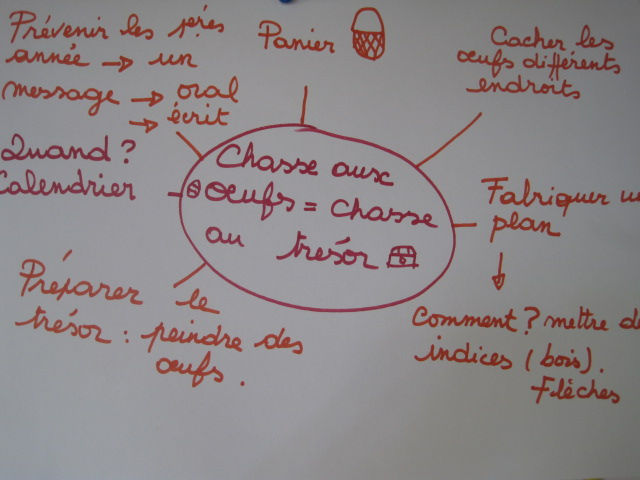 Prévenir les 1ères
année → un
message → oral
→ écrit
Panier
Cacher les
œufs différents
endroits
Quand?
Calendrier
Chasse aux
œufs = chasse
au trésor
Fabriquer un
plan
Comment? mettre d
indices (bois).
Flèches
Préparer le
trésor : peindre des
œufs.